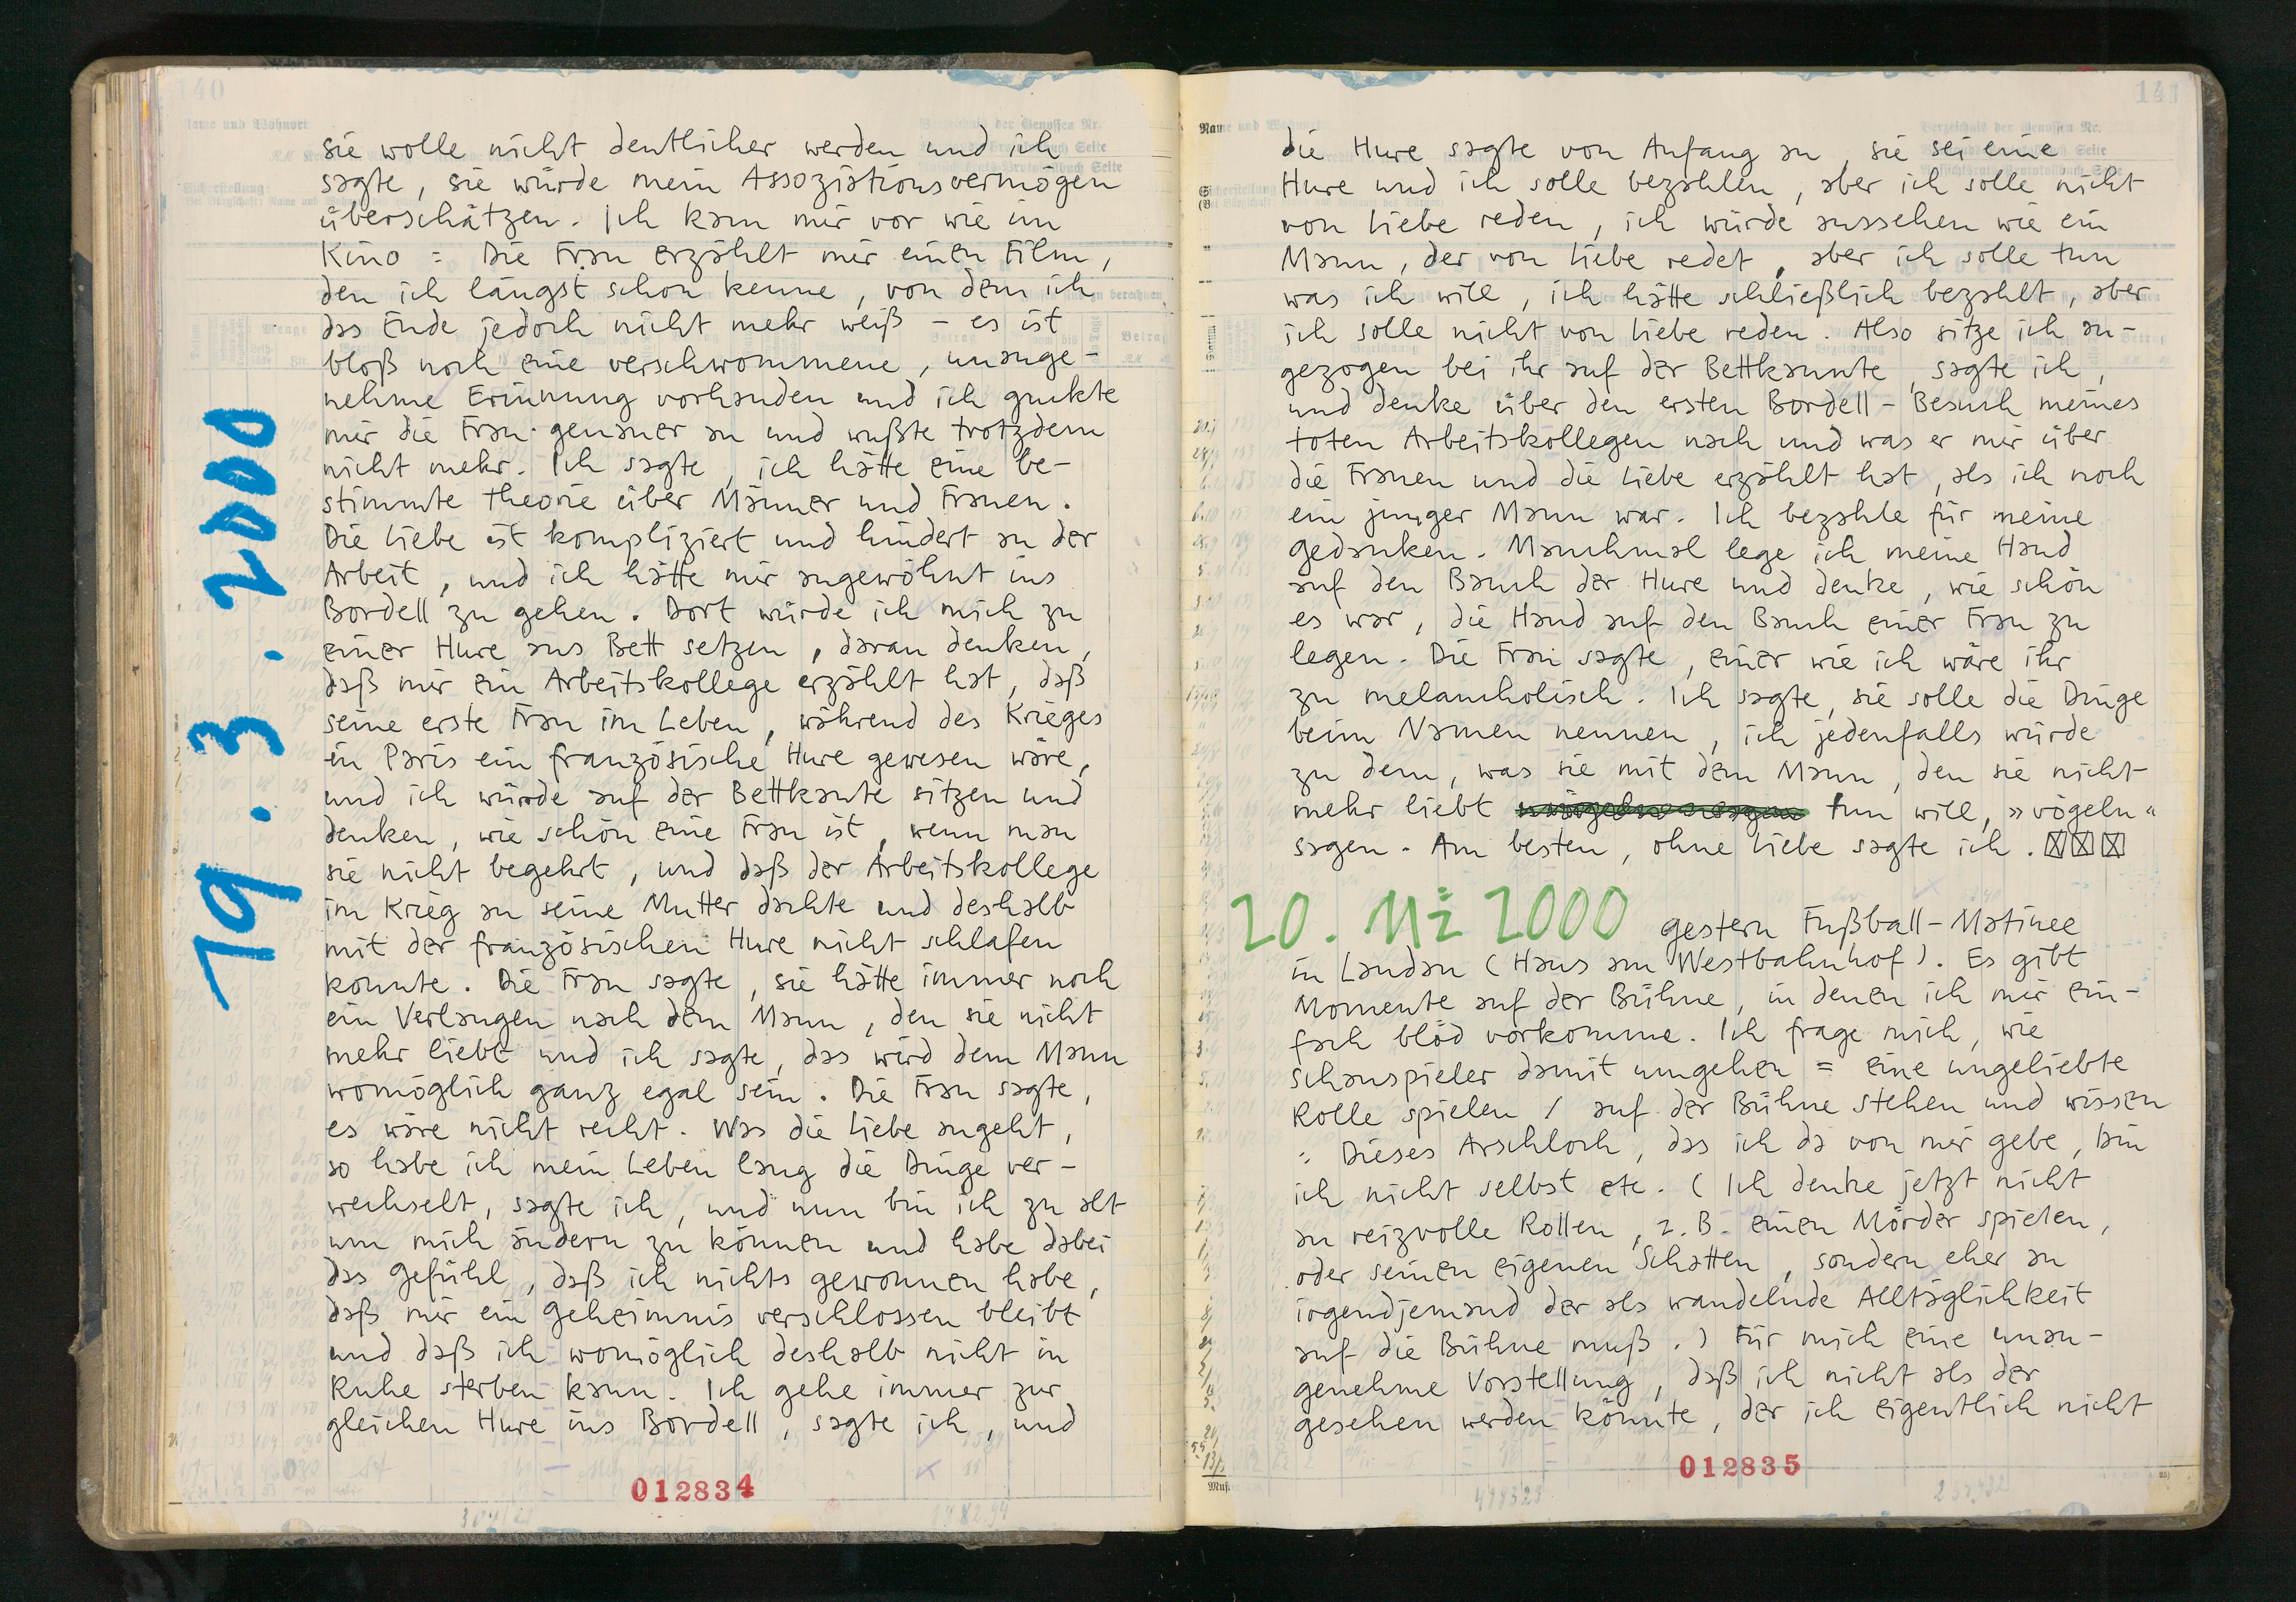 140
19.3.2000
sie wolle nicht deutlicher werden und ich
sagte, sie würde mein Assoziationsvermögen
überschätzen. Ich kam mir vor wie im
Kino = Die Frau erzählt mir einen Film,
den ich längst schon kenne, von dem ich
das Ende jedoch nicht mehr weiß – es ist
bloß noch eine verschwommene, unange-
nehme Erinnung vorhanden und ich guckte
mir die Frau genauer an und wußte trotzdem
nicht mehr. Ich sagte, ich hätte eine be-
stimmte Theorie über Männer und Frauen.
Die Liebe ist kompliziert und hindert an der
Arbeit, und ich hätte mir angewöhnt ins
Bordell zu gehen. Dort würde ich mich zu
einer Hure ans Bett setzen, daran denken,
daß mir ein Arbeitskollege erzählt hat, daß
seine erste Frau im Leben, während des Krieges
in Paris ein französische Hure gewesen wäre,
und ich würde auf der Bettkante sitzen und
denken, wie schön eine Frau ist, wenn man
sie nicht begehrt, und daß der Arbeitskollege
im Krieg an seine Mutter dachte und deshalb
mit der französischen Hure nicht schlafen
konnte. Die Frau sagte, sie hätte immer noch
ein Verlangen nach dem Mann, den sie nicht
mehr liebt und ich sagte, das wird dem Mann
womöglich ganz egal sein. Die Frau sagte,
es wäre nicht recht. Was die Liebe angeht,
so habe ich mein Leben lang die Dinge ver-
wechselt, sagte ich, und nun bin ich zu alt
um mich ändern zu können und habe dabei
das Gefühl, daß ich nichts gewonnen habe,
daß mir ein Geheimnis verschlossen bleibt
und daß ich womöglich deshalb nicht in
Ruhe sterben kann. Ich gehe immer zur
gleichen Hure ins Bordell, sagte ich, und
012834
141
die Hure sagte von Anfang an, sie sei eine
Hure und ich solle bezahlen, aber ich solle nicht
von Liebe reden, ich würde aussehen wie ein
Mann, der von Liebe redet, aber ich solle tun
was ich will, ich hätte schließlich bezahlt, aber
ich solle nicht von Liebe reden. Also sitze ich an-
gezogen bei ihr auf der Bettkannte, sagte ich,
und denke über den ersten Bordell-Besuch meines
toten Arbeitskollegen nach und was er mir über
die Frauen und die Liebe erzählt hat, als ich noch
ein junger Mann war. Ich bezahle für meine
Gedanken. Manchmal lege ich meine Hand
auf den Bauch der Hure und denke, wie schön
es war, die Hand auf den Bauch einer Frau zu
legen. Die Frau sagte, einer wie ich wäre ihr
zu melancholisch. Ich sagte, sie solle die Dinge
beim Namen nennen, ich jedenfalls würde
zu dem, was sie mit dem Mann, den sie nicht
mehr liebt tun will, »vögeln«
sagen. Am besten, ohne Liebe sagte ich.
20. Mä 2000 gestern Fußball-Matinee
in Landau (Haus am Westbahnhof). Es gibt
Momente auf der Bühne, in denen ich mir ein-
fach blöd vorkomme. Ich frage mich, wie
Schauspieler damit umgehen = eine ungeliebte
Rolle spielen / auf der Bühne stehen und wissen
: Dieses Arschloch, das ich da von mir gebe, bin
ich nicht selbst etc. (Ich denke jetzt nicht
an reizvolle Rollen, z.B. einen Mörder spielen,
oder seinen eigenen Schatten, sondern eher an
irgendjemand der als wandelnde Alltäglichkeit
auf die Bühne muß.) Für mich eine unan-
genehme Vorstellung, daß ich nicht als der
gesehen werden könnte, der ich eigentlich nicht
012835